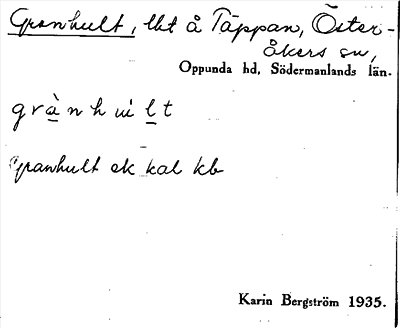 Granhult, lht å Täppan, Öster-
åkers sn,
Oppunda hd, Södermanlands län.
grànhult
Granhult ek kal kb
Karin Bergström 1935.